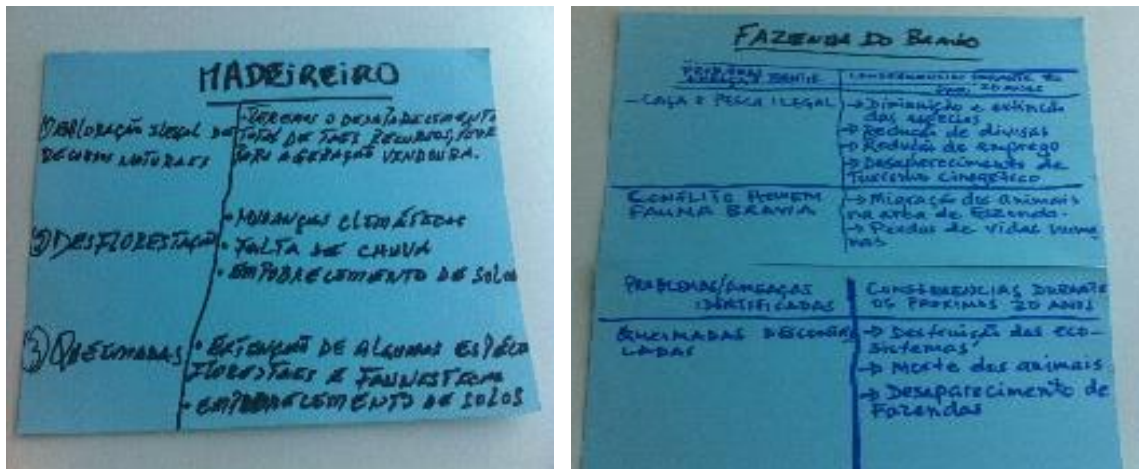 MADEIREIRO
1) EXPLORAÇÃO ILEGAL DE
RECURSOS NATURAES
TEREMOS O DESAPARECIMENTO
TOTAL DE TAES RECURSOS,
PARA A GERAÇÃO VINDOURA.
2) DESFLORESTAÇÃO
• MUDANÇAS CLIMÁTICAS
• FALTA DE CHUVA
• EMPOBRECIMENTO DE SOLOS
3) QUEIMADAS
• EXTENÇÃO DE ALGUMAS ESPÉCIE
FLORESTAES E
• EMPOBRECEMENTO DE SOLOS
FAZENDA DO BRAVIO
CONSEQUENCIAS DURANTE OS
20 ANOS
- CAÇA E PESCA ILEGAL
→ Diminuição e extinção
das especies
→ Redução de divisas
→ Redução de emprego
→ Desaparecimento de
Turismo Cinegetico
CONFLITO HOMEM
FAUNA BRAVIA
→ Migração dos animais
na area da Fazenda.
→ Perdas de vidas huma
nas
PROBLEMAS/AMEAÇAS
IDENTIFICADAS
CONSEQUENCIAS DURANTE
OS PROXIMOS 20 ANOS
QUEIMADAS DESCONTRO
LADAS
→ Destruição dos eco-
sistemas
→ Morte dos animais
→ Desaparecimento de
Fazendas